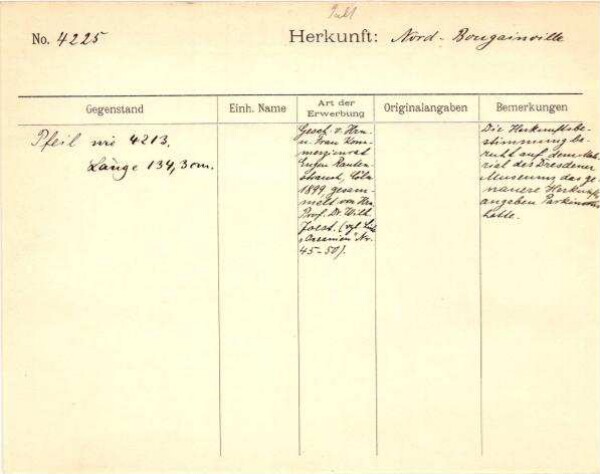 No. 4225
Herkunft: Nord-Bougainville
Gegenstand
Einh. Name
Art der Erwerbung
Originalangaben
Bemerkungen
Pfeil wie 4213.
Länge 134,3 cm.
Gesch. v. Hrn.
u. Frau Kom-
merzienrat
Eugen Rauten-
strauch, Cöln
1899 gesam-
melt von Hrn.
Prof. Dr. Wilh.
Joest. (vgl.
Oceanien Nr.
45-50).
Die Herkunftsbe-
stimmung be-
ruht auf dem
des Dresdener
Museums, das ge-
nauere Herkunfts-
angaben Parkinsons
hatte.